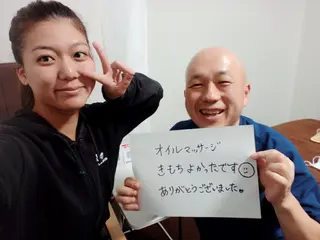 オイルマッサージ
きもちよかったです
ありがとうございました。